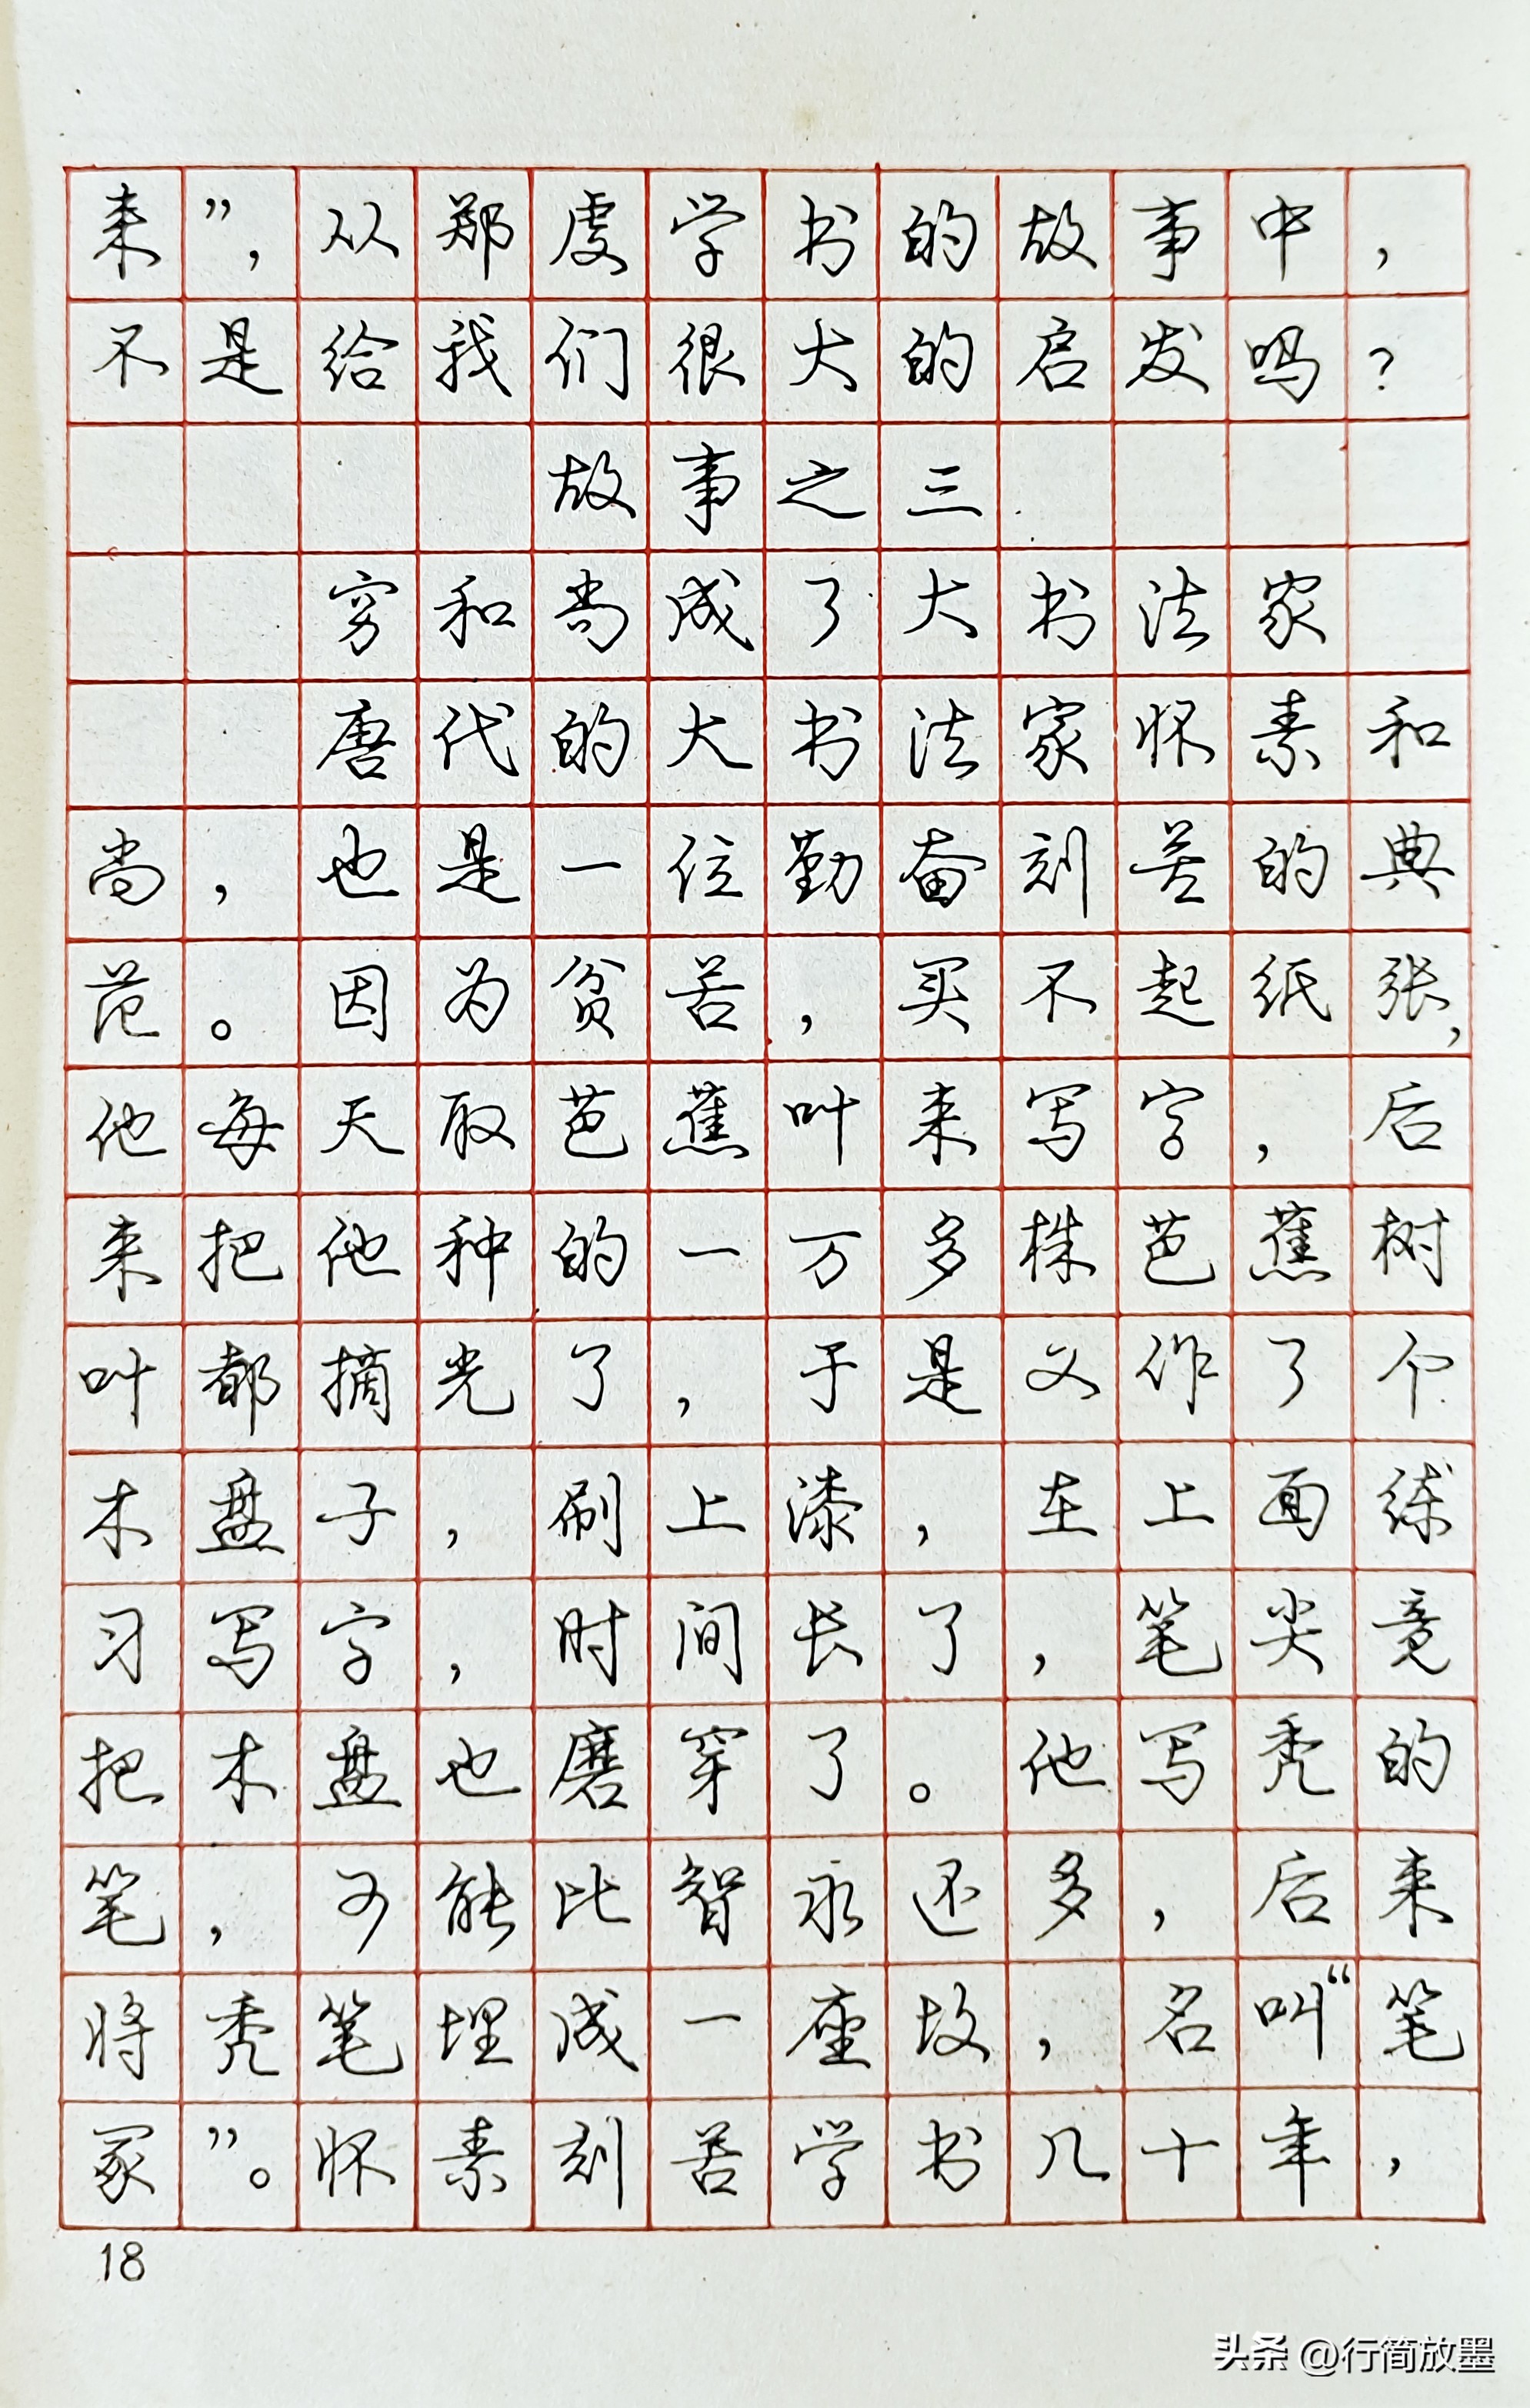 来”，从郑虔学书的故事中，
不是给我们很大的启发吗？
故事之三
穷和尚成了大书法家
唐代的大书法家怀素和
尚，也是一位勤奋刻苦的典
范。因为贫苦，买不起纸张，
他每天取芭蕉叶来写字，后
来把他种的一万多株芭蕉树
叶都摘光了，于是又作了个
木盘子，刷上漆，在上面练
习写字，时间长了，笔尖竟
把木盘也磨穿了。他写秃的
笔，可能比智永还多，后来
将秃笔埋成一座坟，名叫“笔
冢”。怀素刻苦学书几十年，
18
头条 @行简放墨